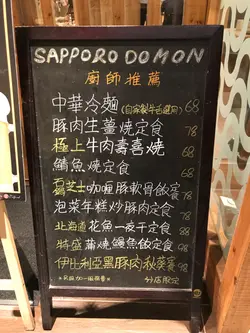 SAPPORO DOMON
廚師推薦
中華冷麵 68
豚肉生薑燒定食 78
極上牛肉壽喜燒 68
鯖魚燒定食 68
芝士咖喱豚軟骨飯定食 78
泡菜年糕炒豚肉定食 78
北海道花魚一夜干定食 78
特盛蒲燒鰻魚飯定食 98
伊比利亞黑豚肉秋葵卷 98
分店限定